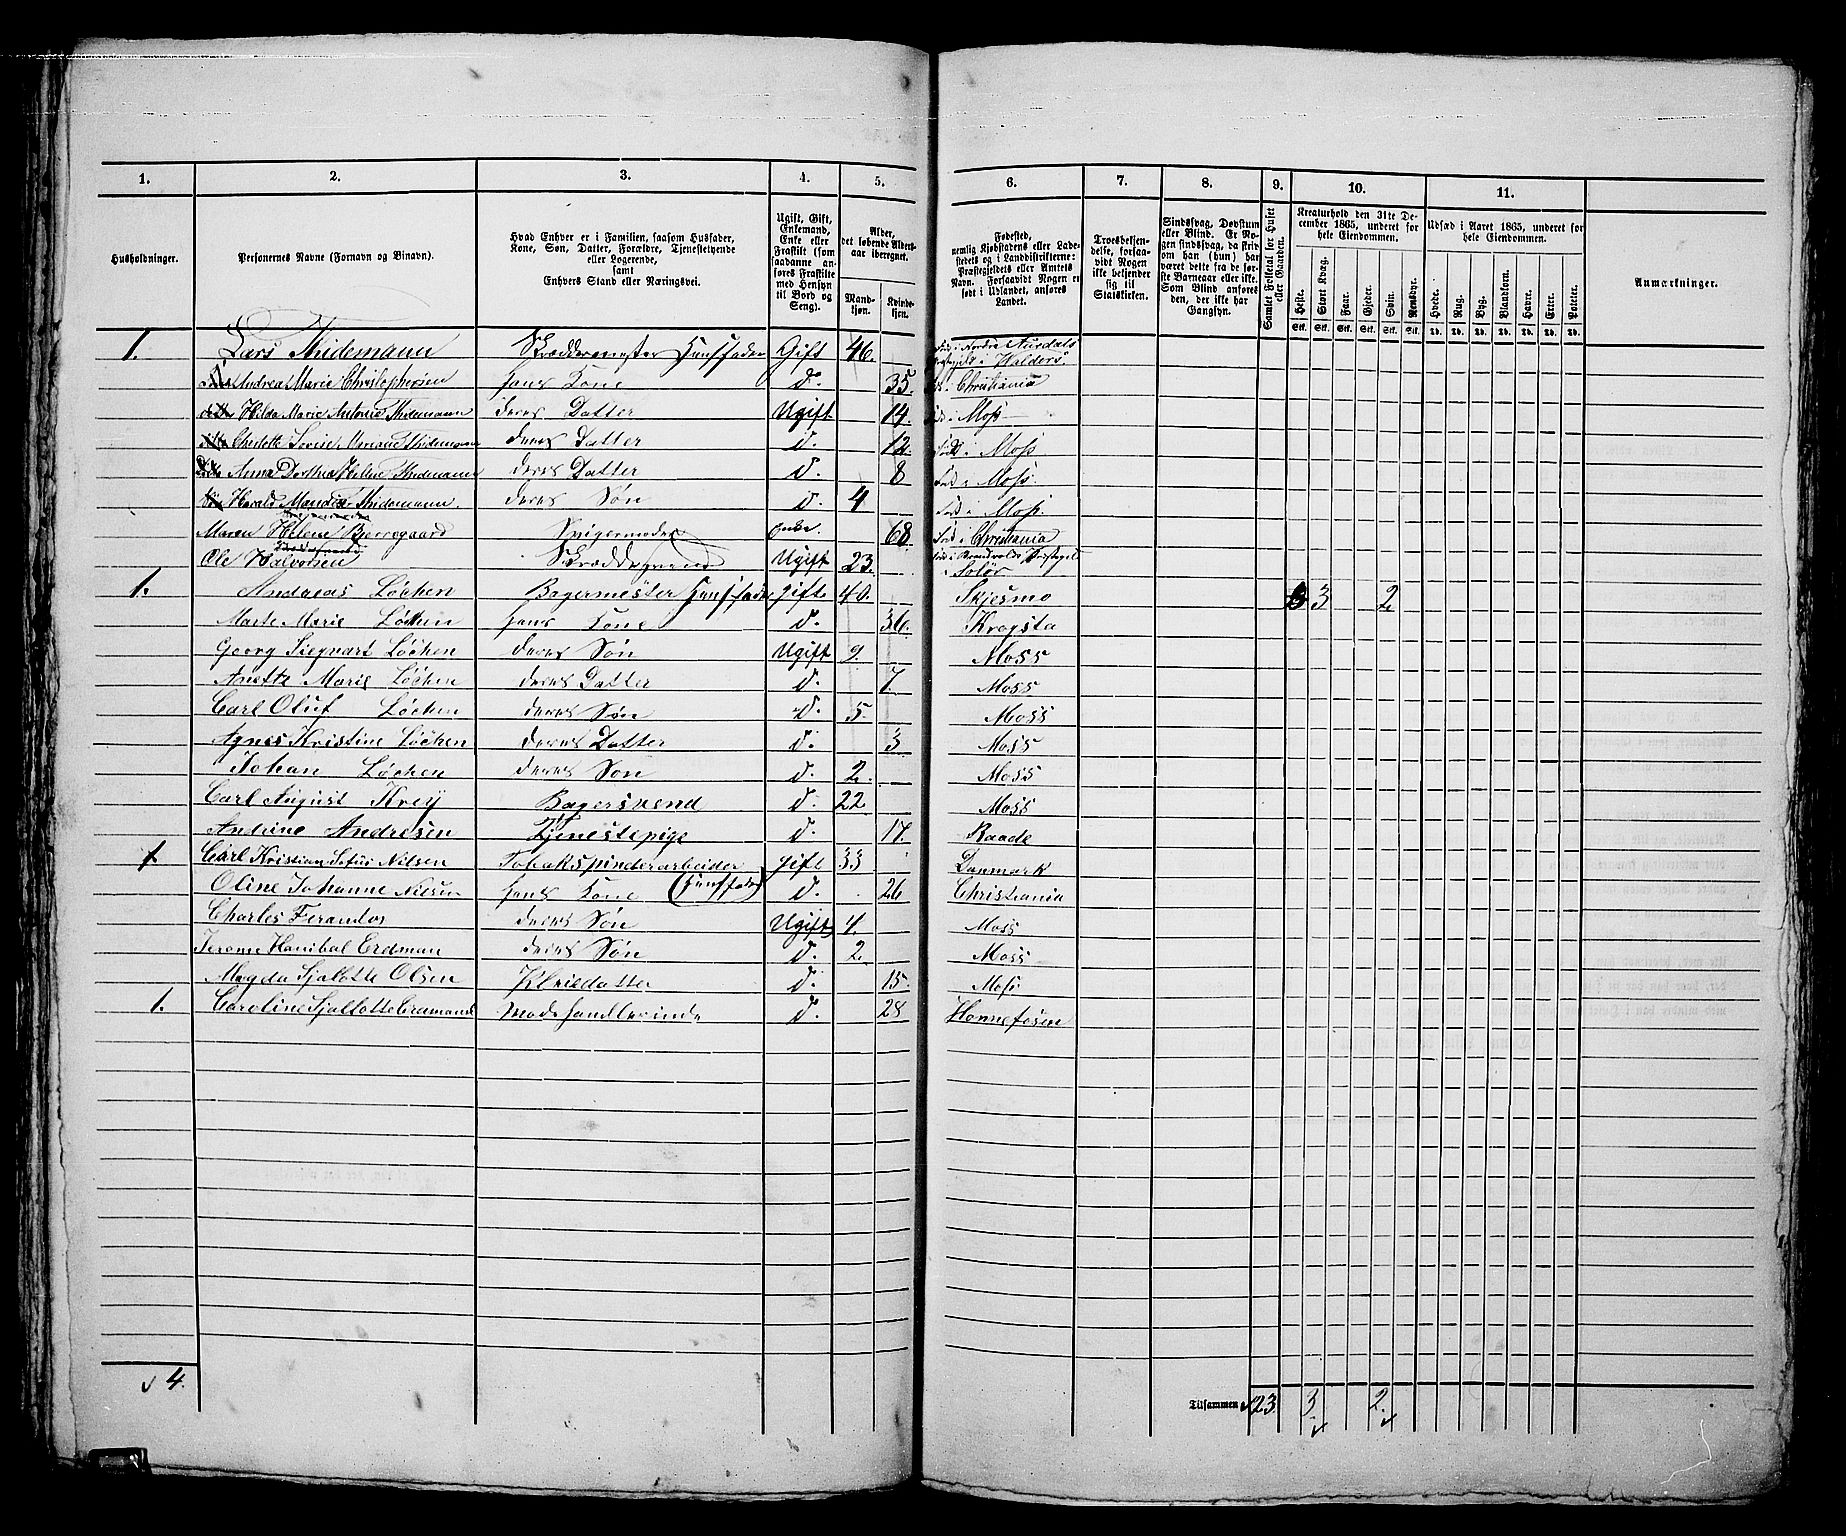 1. 2. 3. 4. 5. 6. 7. 8. 9. 10. 11.
Husholdninger.
Personernes Navne (Fornavn og Binavn).
Hvad Enhver er i Familien, saasom Husfader,
Kone, Søn, Datter, Forældre, Tjenestetyende
eller Logerende,
samt
Enhvers Stand eller Næringsvei.
Ugift, Gift,
Enkemand,
Enke eller
Fraskilt (som
saadanne an-
føres Fraskilte
med Hensyn
til Bord og
Seng).
Alder,
det løbende Alders-
aar iberegnet.
Mand-
kjøn.
Kvinde-
kjøn.
Fødested,
nemlig Kjøbstadens eller Lade-
stedets og i Landdistrikterne:
Præstegjeldets eller Amtets
Navn. Forsaavidt Nogen er
født i Udlandet, anføres
Landet.
Troesbekjen-
delse, forsaa-
vidt Nogen
ikke bekjender
sig til
Statskirken.
Sindssvag, Døvstum
eller Blind. Er No-
gen sindssvag, da skriv
om han (hun) har
været dette fra de før-
ste Barneaar eller ikke.
Som Blind anføres
den, der ikke har
Gangsyn.
Samlet Folketal for Huset
eller Gaarden.
Kreaturhold den 31te De-
cember 1865, underet for
hele Eiendommen.
Heste. Stort Kvæg. Faar. Gjeder. Svin. Rensdyr.
Stk. Stk. Stk. Stk. Stk. Stk.
Udsæd i Aaret 1865, underet for
hele Eiendommen.
Hvede. Rug. Byg. Blandkorn. Havre. Erter. Poteter.
Td. Td. Td. Td. Td. Td. Td.
Anmærkninger.
1. Lars Thidemann Skræddermester Huusfader Gift 46. Nordre Aurdals
i Valders
Andrea Marie Christophersen hans Kone d. 35. Christiania
Hilda Marie Antonie Thidemann deres Datter Ugift 14. Født i Moss
Lovise Thidemann deres Datter d. 12. Født i Moss
Anna Dorthea Helene Thidemann deres Datter d. 8 Født i Moss.
Harald Thidemann deres Søn d. 4 Født i Moss.
Maren Helene Bjerregaard Svigermoder enke. 68 Født i Christiania
Ole Halvorsen Skræddersvend Ugift 23. Født i
Solør
1. Andreas Løchen Bagermester Huusfader gift 40. Skjesmo 3 2
Marte Marie Løchen hans Kone d. 36. Krogsta
Georg Siegvart Løchen deres Søn Ugift 9. Moss
Anette Marie Løchen deres Datter d. 7. Moss
Carl Oluf Løchen deres Søn d. 5. Moss
Agnes Kristine Løchen deres Datter d. 3 Moss
Johan Løchen deres Søn d. 2. Moss
Carl August Krey Bagersvend d. 22. Moss
Andrine Andresen Tjenestepige d. 17. Raade
1 Carl Kristian Nilsen Tobakspinderarbeider gift 33 Danmark
(Huusfader)
Oline Johanne Nilsen hans Kone d. 26 Christiania
Charles Ferandos deres Søn Ugift 4. Moss
Jerome Hanibal Erdman deres Søn d. 2. Moss
Magda Sjalotte Olsen Pleiedatter d. 15. Moss
1. Caroline Sjallotte Modehandlerinde d. 28 Hønnefosen
4. Tilsammen 23 3 2